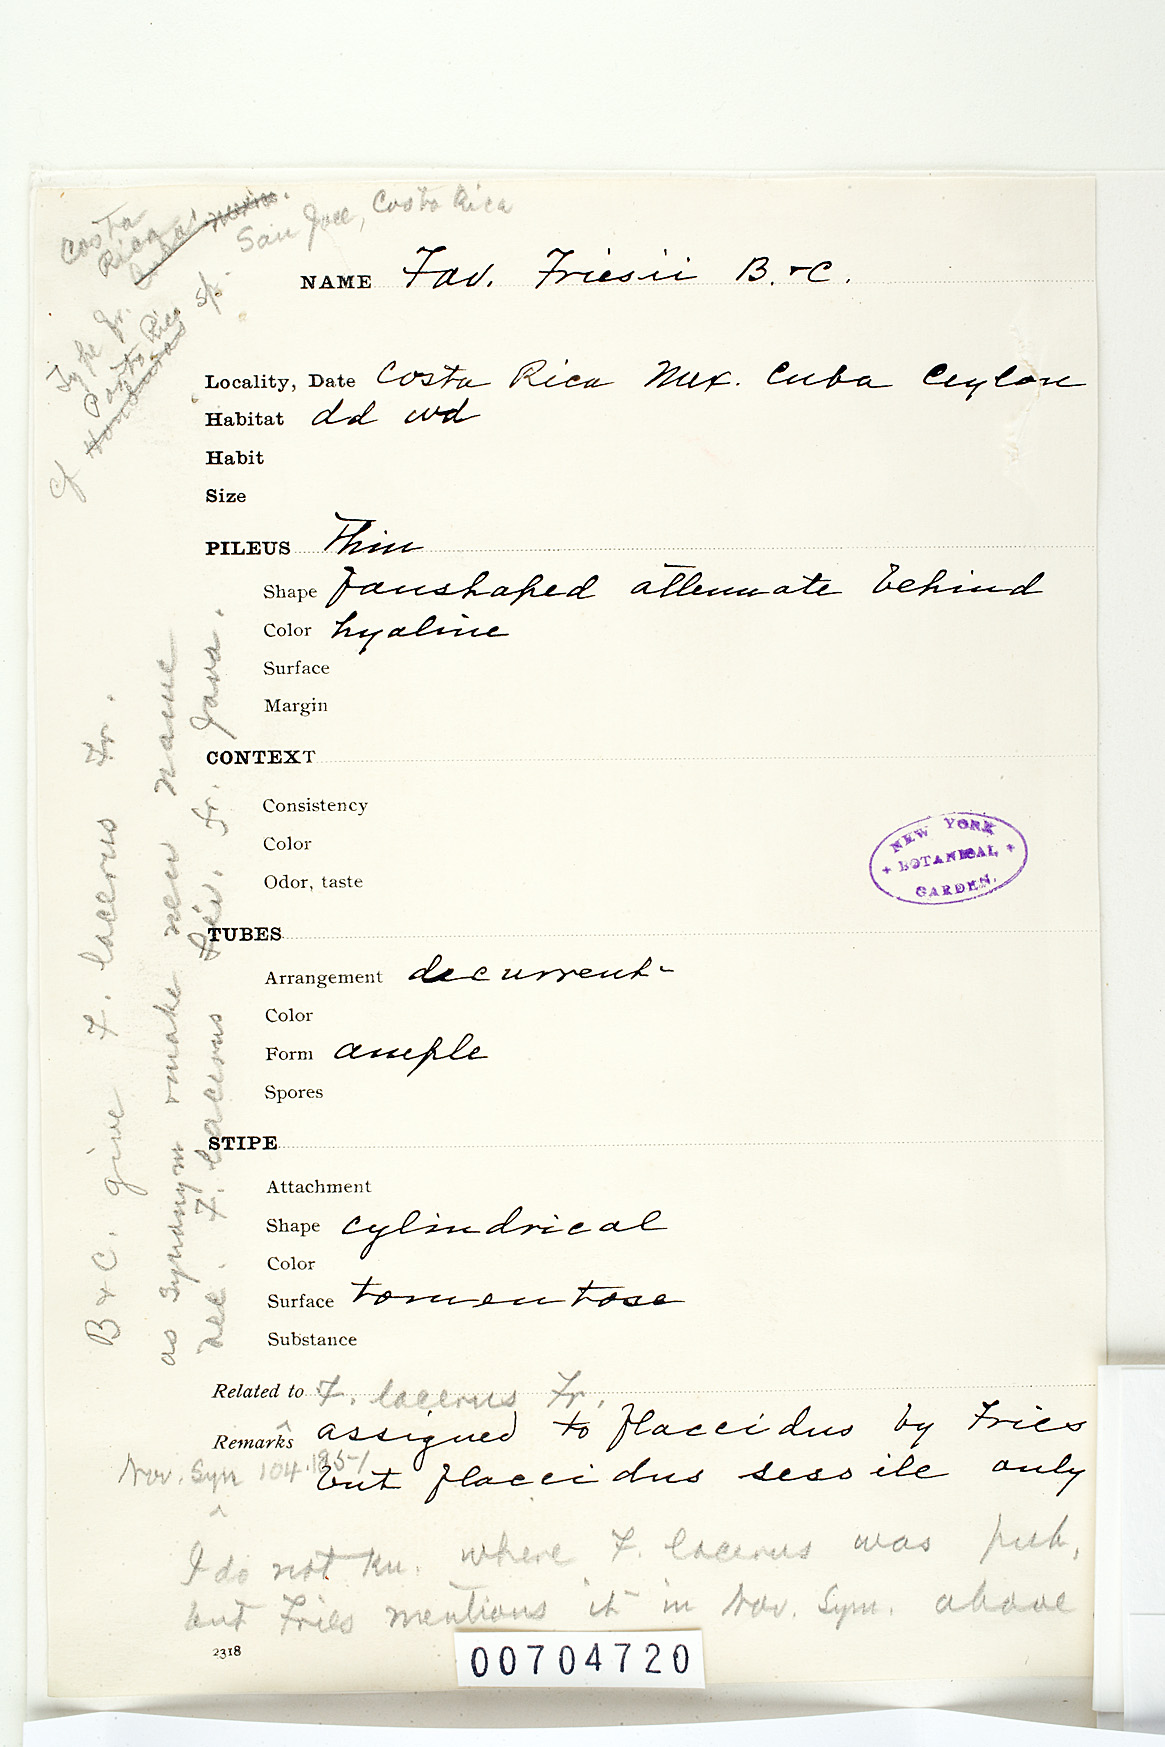 Costa
Rica
San Jose, Costa Rica
NAME Fav. Friesii B. & C.
Type fr.
Porto Rico sp.
cf Honduras
Locality, Date Costa Rica Mex. Cuba Ceylon
Habitat dd wd
Habit
Size
PILEUS Thin
Shape fanshaped attenuate behind
Color hyaline
Surface
Margin
CONTEXT
Consistency
Color
Odor, taste
NEW YORK
+ BOTANICAL +
GARDEN.
TUBES
Arrangement decurrent
Color
Form ample
Spores
STIPE
Attachment
Shape cylindrical
Color
Surface tomentose
Substance
B & C. give F. lacerus Fr.
as Synonym make new name
nec. F. lacerus Fr. Java.
Related to F. lacerus Fr.
Remarks assigned to flaccidus by Fries
Nov. Sym 104. 1851
but flaccidus sessile only
I do not kn. where F. lacerus was pub,
but Fries mentions it in Nov. Sym. above
2318
00704720